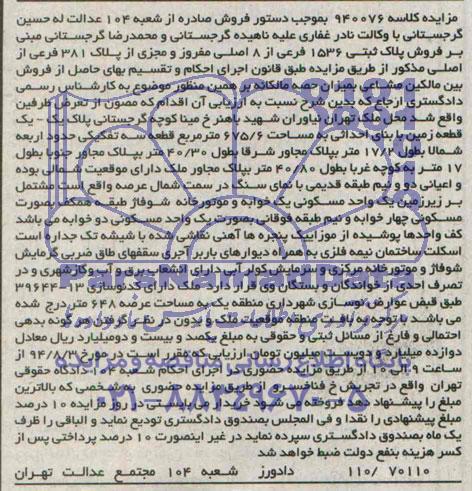 مزایده کلاسه ۹۴۰۰۷۶ بموجب دستور فروش صادره از شعبه ۱۰۴ عدالت له حسین
گرجستانی با وکالت نادر غفاری علیه ناهیده گرجستانی و محمدرضا گرجستانی مبنی
بر فروش پلاک ثبتی ۱۵۳۶ فرعی از ۸ اصلی مفروز و مجزی از پلاک ۳۸۱ فرعی از
اصلی مذکور از طریق مزایده طبق قانون اجرای احکام و تقسیم بهای حاصل از فروش
بین مالکین مشاعی بمیزان حصه مالکانه بر همین منظور موضوع به کارشناس رسمی
دادگستری ارجاع که بدین شرح نسبت به ارزیابی آن اقدام که مصون از تعرض طرفین
واقع شد محل ملک تهران نیاوران شهید باهنر خ مینا کوچه گرجستانی پلاک یک - یک
قطعه زمین با بنای احداثی به مساحت ۶۷۵/۶ مترمربع قطعه تفکیکی حدود اربعه
شمالا بطول ۱۷/۲ متر بپلاک مجاور شرقا بطول ۴۰/۳۰ متر بپلاک مجاور جنوبا بطول
۱۷ متر به کوچه غربا بطول ۴۰/۸۰ متر بپلاک مجاور ملک دارای موقعیت شمالی بوده
و اعیانی دو و نیم طبقه قدیمی با نمای سنگ در سمت شمال عرصه واقع است مشتمل
بر زیرزمین یک واحد مسکونی یک خوابه و موتورخانه شوفاژ طبقه همکف بصورت
مسکونی چهار خوابه و نیم طبقه فوقانی بصورت یک واحد مسکونی دو خوابه می باشد
کف واحدها پوشیده از موزاییک پنجره ها آهنی نقاشی شده با شیشه تک جداره است
اسکلت ساختمان نیمه فلزی به همراه دیوارهای باربر آجری سقفهای طاق ضربی گرمایش
شوفاژ و موتورخانه مرکزی و سرمایش کولر آبی دارای انشعاب برق و آب و گاز شهری و در
تصرف احدی از خواندگان و بستگان وی قرار دارد. ملک دارای کدنوسازی ۱۳ - ۳۹۶۴۴
طبق قبض عوارض نوسازی شهرداری منطقه یک به مساحت عرصه ۶۴۸ متر درج شده
می باشد با توجه به بافت منطقه موقعیت ملک و بدون در نظر گرفتن هر گونه بدهی
احتمالی و فارغ از مسائل ثبتی و حقوقی به مبلغ یکصد و بیست و دومیلیارد ریال معادل
دوازده میلیارد و دویست میلیون تومان ارزیابی که مقرر است در مورخ ۹۴/۸/
ساعت ۹ الی ۱۰ از طریق مزایده حضوری در اجرای احکام شعبه ۱۰۴ دادگاه حقوقی
تهران واقع در تجریش خ فناخسرو از طریق مزایده حضوری به شخصی که بالاترین
مبلغ را پیشنهاد دهد فروخته می شود خریدار می بایستی در روز مزایده ۱۰ درصد
مبلغ پیشنهادی را نقدا و فی المجلس بصندوق دادگستری تودیع نماید و الباقی را ظرف
یک ماه بصندوق دادگستری سپرده نماید در غیر اینصورت ۱۰ درصد پرداختی پس از
کسر هزینه بنفع دولت ضبط خواهد شد
۱۱۰/ ۷۰۱۱۰ دادورز شعبه ۱۰۴ مجتمع عدالت تهران
۰۲۱-۸۸۳۴۹۶۷۰-۵